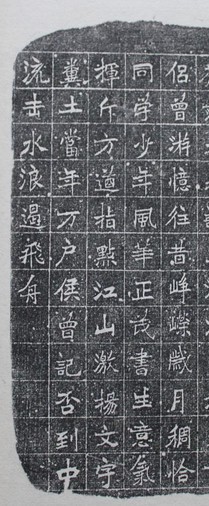 侶曾游憶往昔崢嶸歲月稠恰
同学少年風華正茂書生意氣
揮斥方遒指點江山激揚文字
糞土當年万户侯曾記否到中
流击水浪遏飛舟